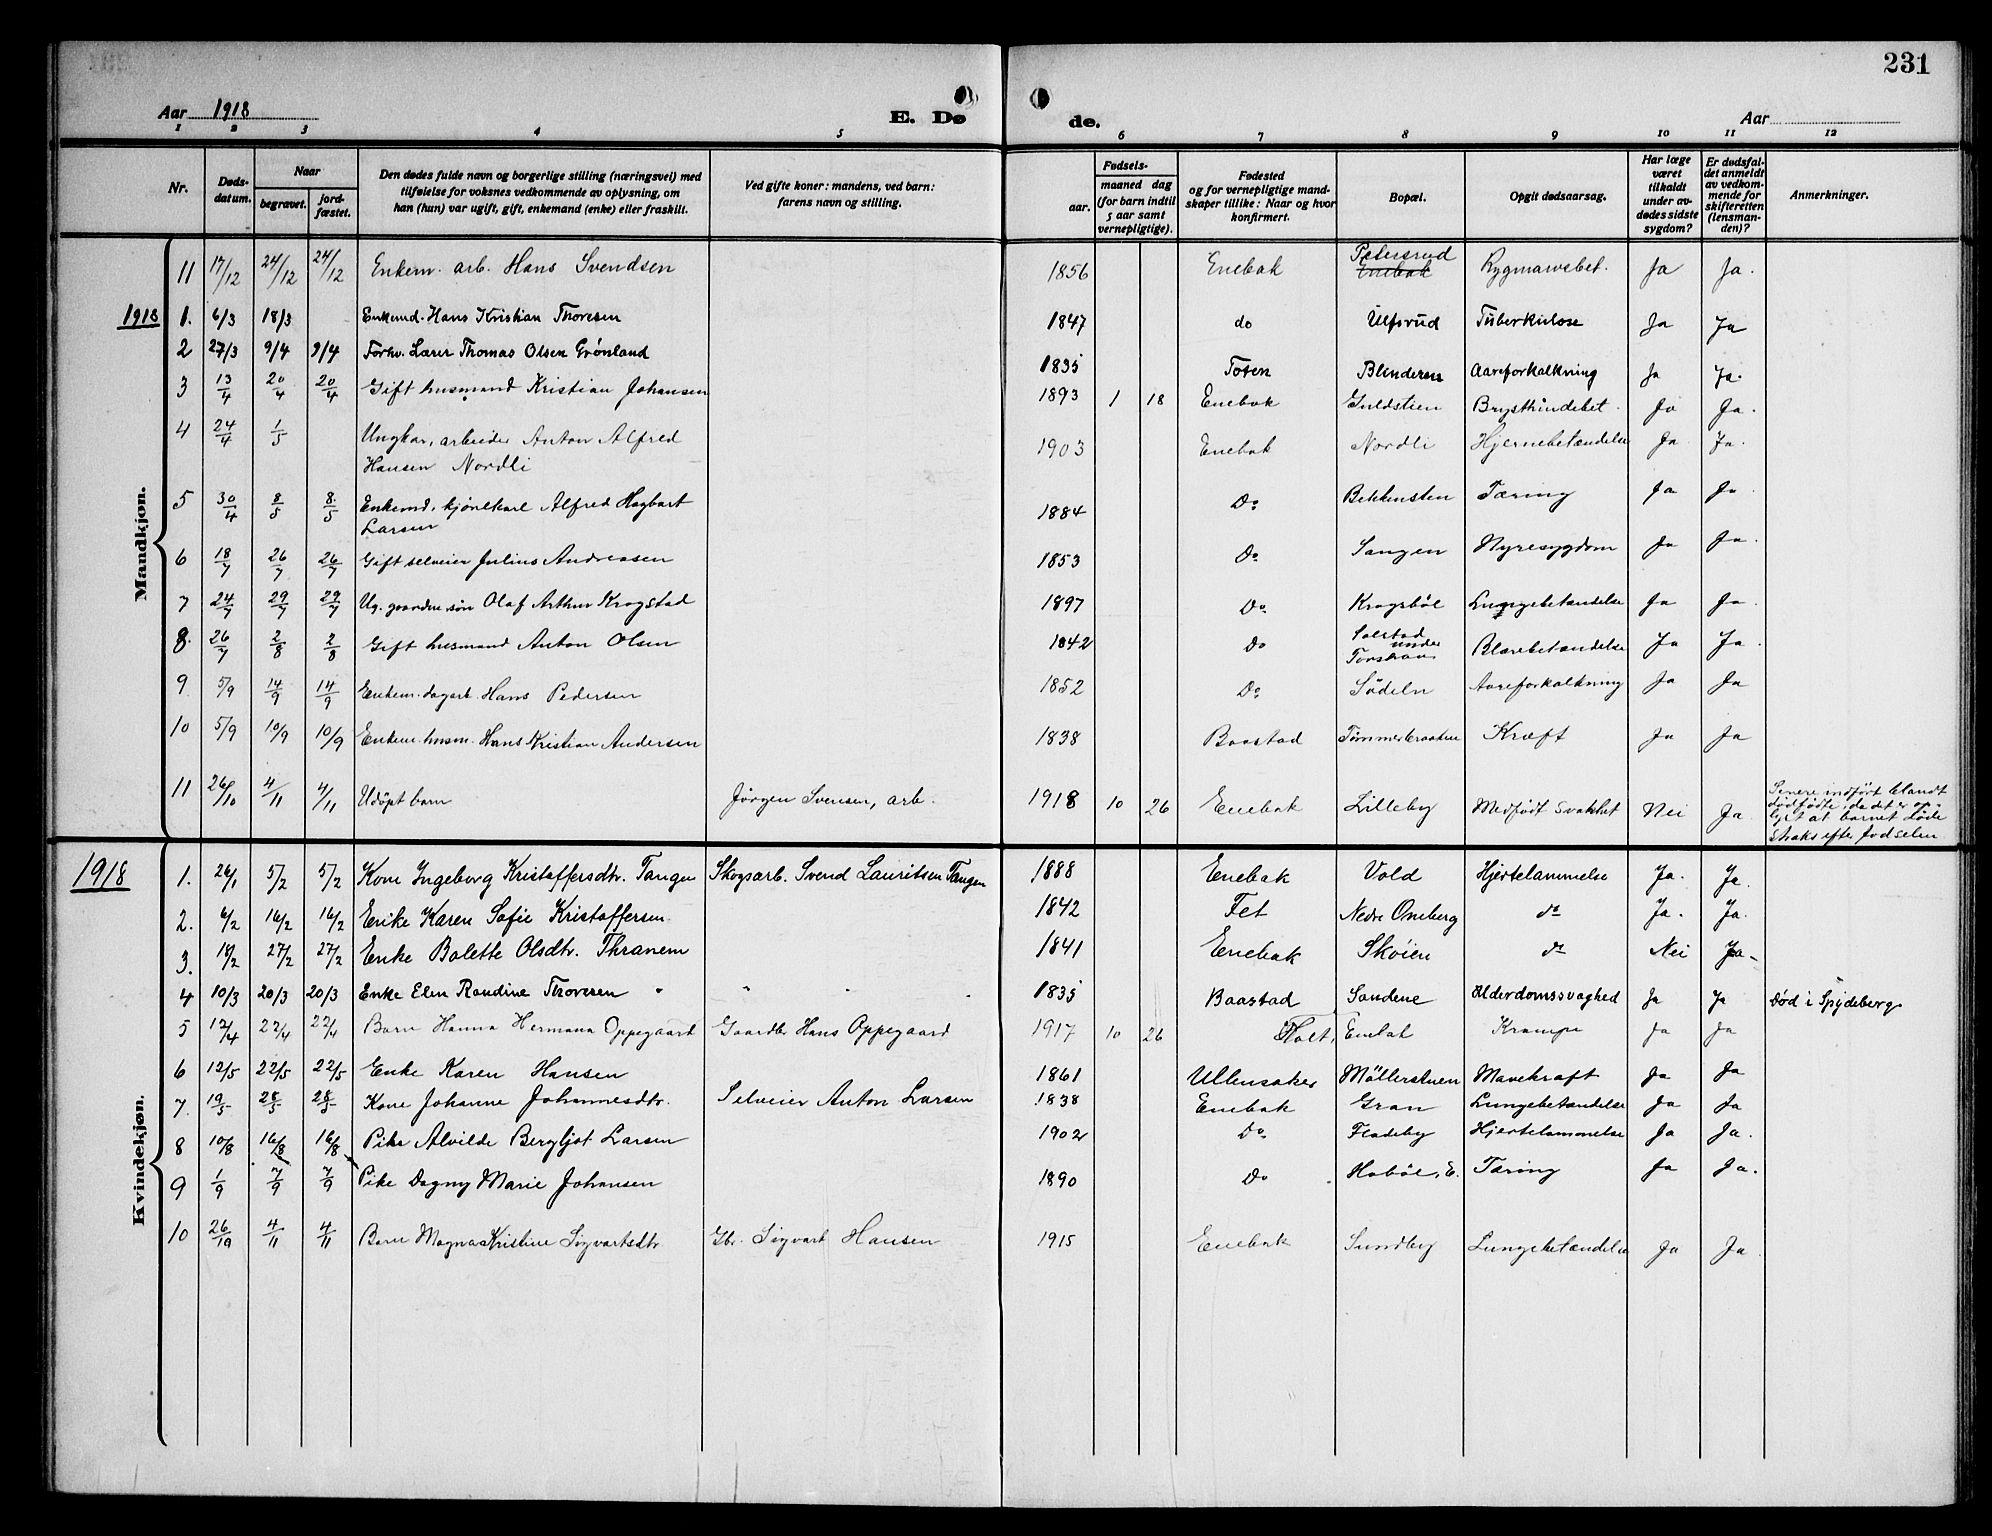 231
Aar 1918 E. Dø de. Aar
1 2 3 4 5 6 7 8 9 10 11 12
Nr. Døds-datum. Naar begravet. jord-fæstet. Den dødes fulde navn og borgerlige stilling (næringsvei) med tilføielse for voksnes vedkommende av oplysning, om han (hun) var ugift, gift, enkemand (enke) eller fraskilt. Ved gifte koner: mandens, ved barn: farens navn og stilling. Fødsels- aar. maaned dag (for barn indtil 5 aar samt vernepligtige). Fødested og for vernepligtige mand-skaper tillike: Naar og hvor konfirmert. Bopæl. Opgit dødsaarsag. Har læge været tilkaldt under av-dødes sidste sygdom? Er dødsfal-det anmeldt av vedkom-mende for skifteretten (lensman-den)? Anmerkninger.
11 17/12 24/12 24/12 Enkem. arb. Hans Svendsen 1856 Enebak Enebak Petersrud Rygmarvsbet. Ja Ja.
Mandkjøn.
1918 1. 6/3 18/3 Enkemd. Hans Kristian Thoresen 1847 do Ulfsrud Tuberkulose Ja Ja
2 27/3 9/4 9/4 Forhv. Lærer Thomas Olsen Grønland 1835 Toten Blinderen Aareforkalkning Ja Ja.
3 13/4 20/4 20/4 Gift husmand Kristian Johansen 1893 1 18 Enebak Guldstien Brysthindebet. Ja Ja.
4 24/4 1/5 Ungkar, arbeider Anton Alfred Hansen Nordli 1903 Enebak Nordli Hjernebetændelse Ja Ja.
5 30/4 8/5 8/5 Enkemd. kjørekarl Alfred Hagbart Larsen 1884 Do Bekkensten Tæring Ja Ja
6 18/7 26/7 26/7 Gift selveier Julius Andreasen 1853 Do Tangen Nyresygdom Ja Ja.
7 24/7 29/7 29/7 Ug. gaardm. søn Olaf Arthur Krogstad 1897 Do. Krogsbøl Lungebetændelse Ja Ja.
8. 26/7 2/8 2/8 Gift husmand Anton Olsen 1842 Do under Blærebetændelse Ja Ja.
9 5/9 14/9 14/9 Enkem. dagarb. Hans Pedersen 1852 Do. Sødeln Aareforkalkning Ja Ja
10 5/9 10/9 10/9 Enkem. husm. Hans Kristian Andersen 1838 Baastad Tømmerbraaten Kræft Ja Ja
11 26/10 4/11 4/11 Udøpt barn Jørgen Svensen, arb. 1918 10 26 Enebak Lilleby Medfødt svakhet Nei Ja Senere indført blandt dødfødte, da det er op-lyst at barnet døde straks efter fødselen
Kvindekjøn.
1918 1. 26/1 5/2 5/2 Kone Ingeborg Kristoffersdtr. Tangen Skogsarb. Svend Lauritsen Tangen 1888 Enebak Vold Hjertelammelse Ja. Ja.
2. 6/2 16/2 16/2 Enke Karen Sofie Kristoffersen 1842 Fet Nedre Oneberg do Ja. Ja.
3. 18/2 27/2 27/2 Enke Bolette Olsdtr. Thranem 1841 Enebak Skøien do Nei Ja
4 10/3 20/3 20/3 Enke Elen Randine Thoresen " " 1835 Baastad Sandene Alderdomssvaghed Ja Ja Død i Spydeberg
5 12/4 22/4 22/4 Barn Hanna Hermana Oppegaard Gaardbr. Hans Oppegaard 1917 10 26 Holt, Enebak Krampe Ja Ja
6 12/5 22/5 22/5 Enke Karen Hansen 1861 Ullensaker Møllerstuen Mavekræft Ja Ja
7. 19/5 28/5 28/5 Kone Johanne Johannesdtr. Selveier Anton Larsen 1838 Enebak Gran Lungebetændelse Ja Ja
8 10/8 16/8 16/8 Pike Alvilde Bergljot Larsen 1902 Do. Fladeby Hjertelammelse Ja Ja.
9 1/9 7/9 7/9 Pike Dagny Marie Johansen 1890 Do Habøl, E. Tæring Ja Ja.
10 26/10 4/11 4/11 Barn Magna Kristine Sigvartsdtr. Gbr. Sigvart Hansen 1915 Enebak Sundby Lungebetændelse Ja Ja